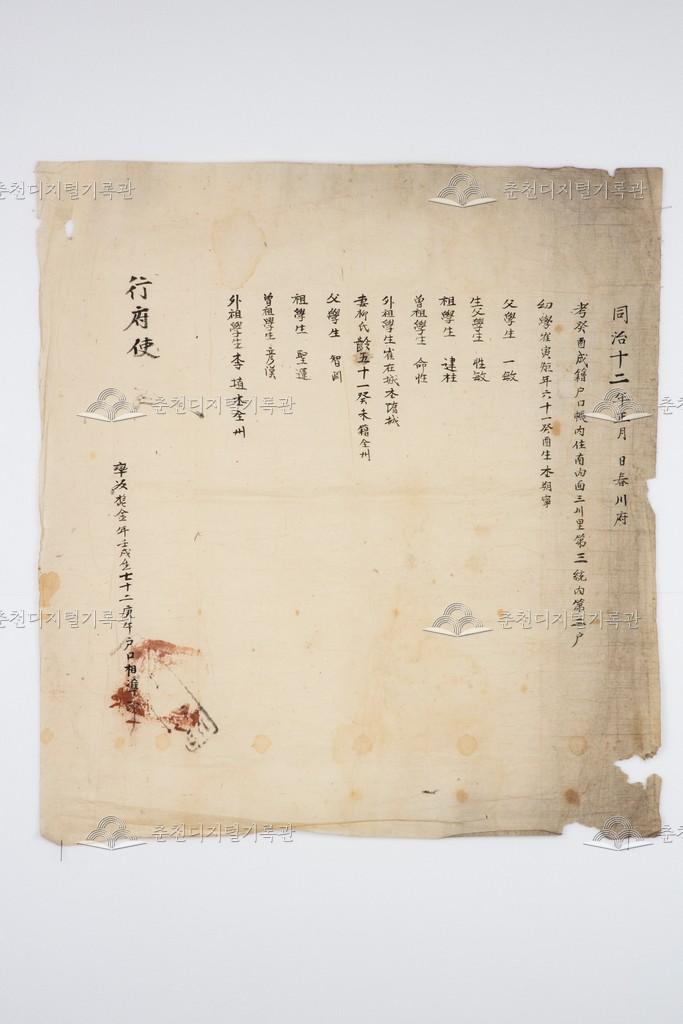 同治十二年正月 日春川府
考癸酉成籍戶口帳內住南內面三川里第三統內第三戶
幼學崔寅 年六十一癸酉生本朔寧
父學生 一敏
生父學生 性敏
祖學生 建柱
曾祖學生 命性
外祖學生崔在城本 城
妻柳氏齡五十一癸未籍全州
父學生 智
祖學生 聖運
曾祖學生 彦漢
外祖學生李 本全州
行府使
率 金 年壬戌生七十二庚午戶口相準
춘천디지털기록관
춘천디지털기록관
춘천디지털기록관
춘천디지털기록관
춘천디지털기록관
춘천디지털기록관